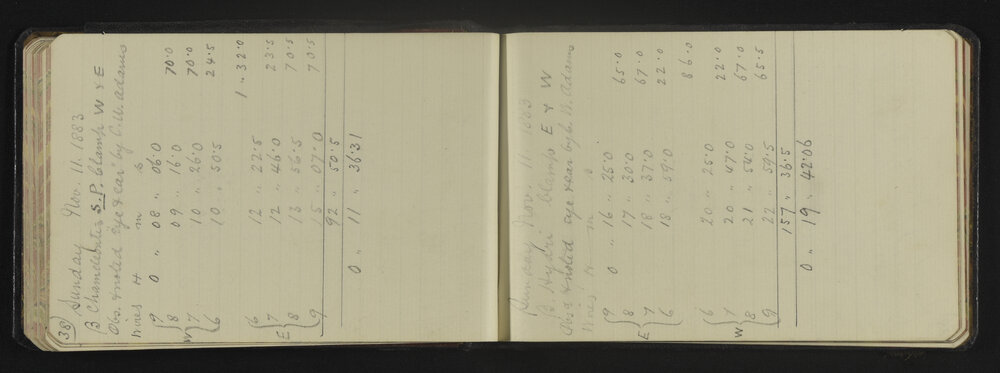 38
Sunday Nov. 11. 1883
β Chamelentis S.P. Clamp W & E
Obs. & noted Eye & ear by C.W. Adams
Wires H m s
9 0 " 08 " 06.0
8 09 " 16.0 70.0
W 7 10 " 26.0 70.0
6 10 " 50.5 24.5
1 " 32.0
6 12 " 22.5
7 12 " 46.0 23.5
E 8 13 " 56.5 70.5
9 15 " 07.0 70.5
92 50.5
0 " 11 " 36.31
Sunday Nov. 11. 1883
β Hydri Clamp E & W
Obs & noted eye & ear by C.W. Adams
Wires H m s
9 0 " 16 " 25.0
8 17 " 30.0 65.0
E 7 18 " 37.0 67.0
6 18 " 59.0 22.0
86.0
6 20 " 25.0
7 20 " 47.0 22.0
W 8 21 " 54.0 67.0
9 22 " 59.5 65.5
157 36.5
0 " 19 " 42.06